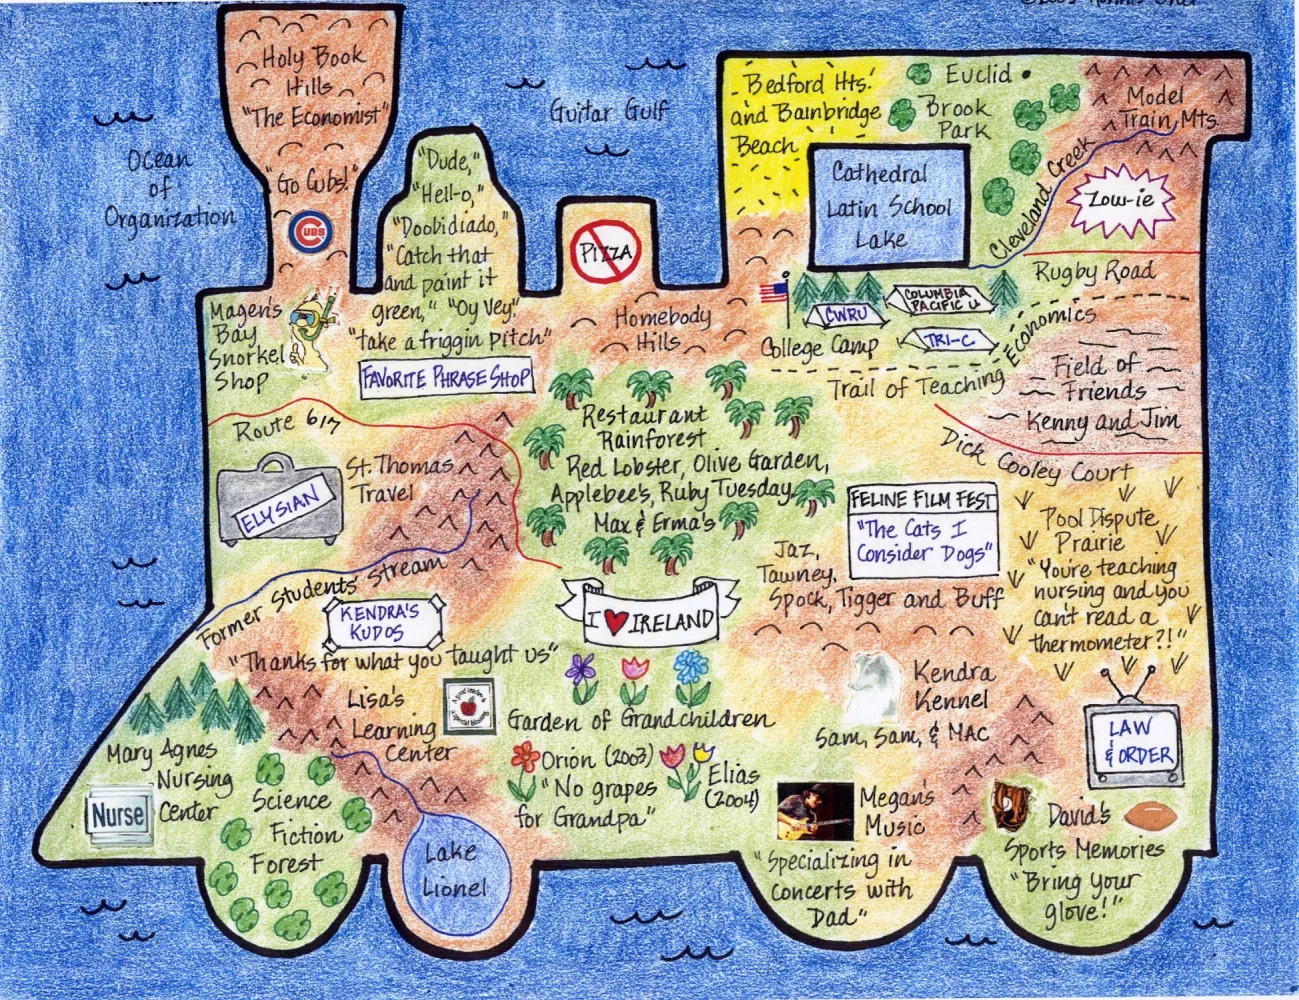 Holy Book
Hills
"The Economist"
"Go Cubs!"
CUBS
Ocean
of
Organization
Guitar Gulf
"Dude,"
"Hell-o,"
"Doobidiado,"
"Catch that
and paint it
green," "Oy Vey!"
"take a friggin pitch"
FAVORITE PHRASE SHOP
PIZZA
Homebody
Hills
Bedford Hts.
and Bainbridge
Beach
Euclid
Brook
Park
Model
Train Mts.
Cathedral
Latin School
Lake
Cleveland Creek
Zow-ie
Rugby Road
CWRU
COLUMBIA
PACIFIC U
TRI-C
College Camp
Trail of Teaching Economics
Field of
Friends
Kenny and Jim
Dick Cooley Court
Magen's
Bay
Snorkel
Shop
Route 617
ELYSIAN
St. Thomas
Travel
Restaurant
Rainforest
Red Lobster, Olive Garden,
Applebee's, Ruby Tuesday,
Max & Erma's
FELINE FILM FEST
"The Cats I
Consider Dogs"
Jaz,
Tawney,
Spock, Tigger and Buff
Pool Dispute
Prairie
"You're teaching
nursing and you
can't read a
thermometer?!"
Former Students' Stream
KENDRA'S
KUDOS
"Thanks for what you taught us"
I ♥ IRELAND
Garden of Grandchildren
Orion (2003)
"No grapes
for Grandpa"
Elias
(2004)
Lisa's
Learning
Center
Mary Agnes
Nursing
Center
Nurse
Science
Fiction
Forest
Lake
Lionel
Kendra
Kennel
Sam, Sam, & MAC
LAW
& ORDER
Megan's
Music
"Specializing in
concerts with
Dad"
David's
Sports Memories
"Bring your
glove!"